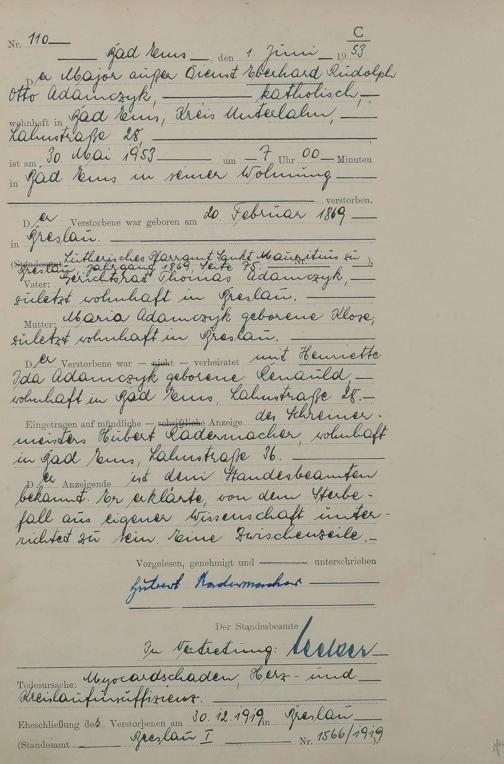 C
Nr. 110
Bad Ems, den 1. Juni 1953
Der Major außer Dienst Eberhard Rudolph
Otto Adamczyk, katholisch,
wohnhaft in Bad Ems, Kreis Unterlahn,
Lahnstraße 28,
ist am 30. Mai 1953 um 7 Uhr 00 Minuten
in Bad Ems in seiner Wohnung
verstorben.
Der Verstorbene war geboren am 20. Februar 1869
in Breslau.
(Standesamt Lutherisches Pfarramt Sankt Mauritius zu Nr. ),
Breslau, Jahrgang 1869, Seite 75.
Vater: Gerichtsrat Thomas Adamczyk,
zuletzt wohnhaft in Breslau.
Mutter: Maria Adamczyk geborene Klose,
zuletzt wohnhaft in Breslau.
Der Verstorbene war – nicht – verheiratet mit Henriette
Ida Adamczyk geborene Renauld,
wohnhaft in Bad Ems, Lahnstraße 28.
Eingetragen auf mündliche – schriftliche Anzeige des Schreiner-
meisters Hubert Radermacher, wohnhaft
in Bad Ems, Lahnstraße 36.
Der Anzeigende ist dem Standesbeamten
bekannt. Er erklärte, von dem Sterbe-
fall aus eigener Wissenschaft unter-
richtet zu sein. Eine Zwischenzeile.
Vorgelesen, genehmigt und unterschrieben
Hubert Radermacher
Der Standesbeamte
In Vertretung:
Todesursache: Myocardschaden, Herz- und
Kreislaufinsuffizienz.
Eheschließung des Verstorbenen am 30.12.1919 in Breslau
(Standesamt Breslau I Nr. 1566/1919